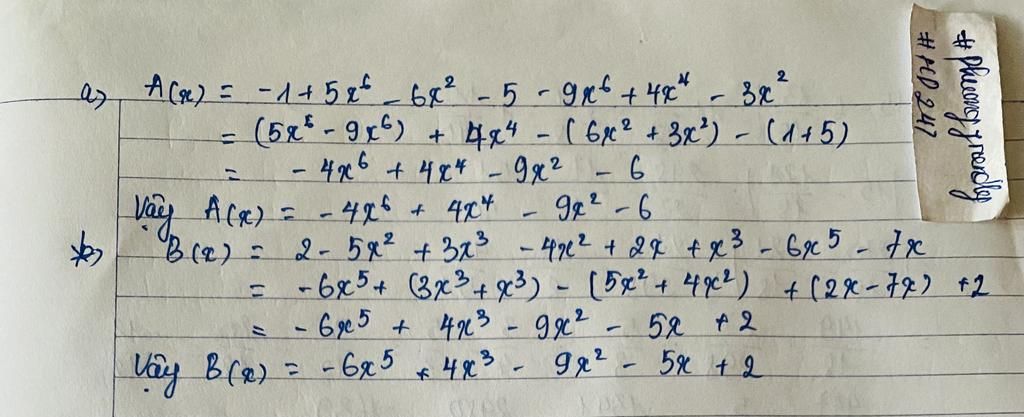 a) A(x) = -1 + 5x⁶ - 6x² - 5 - 9x⁶ + 4x⁴ - 3x²
= (5x⁶ - 9x⁶) + 4x⁴ - (6x² + 3x²) - (1+5)
= - 4x⁶ + 4x⁴ - 9x² - 6
Vậy A(x) = - 4x⁶ + 4x⁴ - 9x² - 6
b) B(x) = 2 - 5x² + 3x³ - 4x² + 2x + x³ - 6x⁵ - 7x
= -6x⁵ + (3x³ + x³) - (5x² + 4x²) + (2x - 7x) + 2
= - 6x⁵ + 4x³ - 9x² - 5x + 2
Vậy B(x) = -6x⁵ + 4x³ - 9x² - 5x + 2